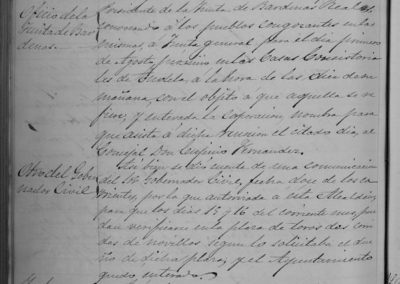 Oficio de la
Junta de Bar
denas.
Presidente de la Junta de Bardenas Reales
convocando á los pueblos congozantes en las
mismas, á Junta general para el dia primero
de Agosto próximo en las Casas Consistoria
les de Tudela á la hora de las diez de la
mañana, con el objeto á que aquella se re
fiere; y enterada la Corporacion nombra para
que asista á dicha reunion el citado dia, al
Concejal Don Eugenio Fernandez.
Otro del Gober
nador Civil
Asi bien se dió cuenta de una comunicacion
del Sr Gobernador Civil, fecha doce de los co
rrientes, por la que autorizada a esta Alcaldia,
para que los dias 15 y 16 del corriente mes pue
dan verificarse en la plaza de toros dos corri
das de novillos segun lo solicitaba el due
ño de dicha plaza, y el Ayuntamiento
quedó enterado.